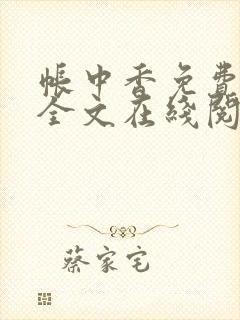 帐中香免费
全文在线阅
蔡家宅